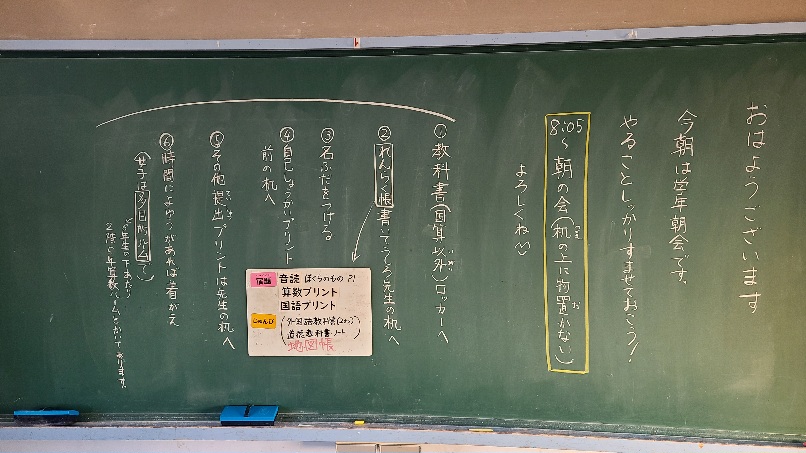 おはようございます
今朝は学年朝会です。
やることしっかりすませておこう!
8:05〜朝の会(机の上に物置かない)
よろしくね
①教科書(国算以外)ロッカーへ
②れんらく帳書いてつくろ先生の机へ
③名ふだをつける
④自己しょうかいプリント
前の机へ
⑤その他提出プリントは先生の机へ
⑥時間によゆうがあれば着がえ
(女子は多目的室で)
2階の
宿題
音読 ぼくらのもの P.
算数プリント
国語プリント
じゅんび
(外国語教科書(2さつ)
道徳教科書・ノート)
地図帳